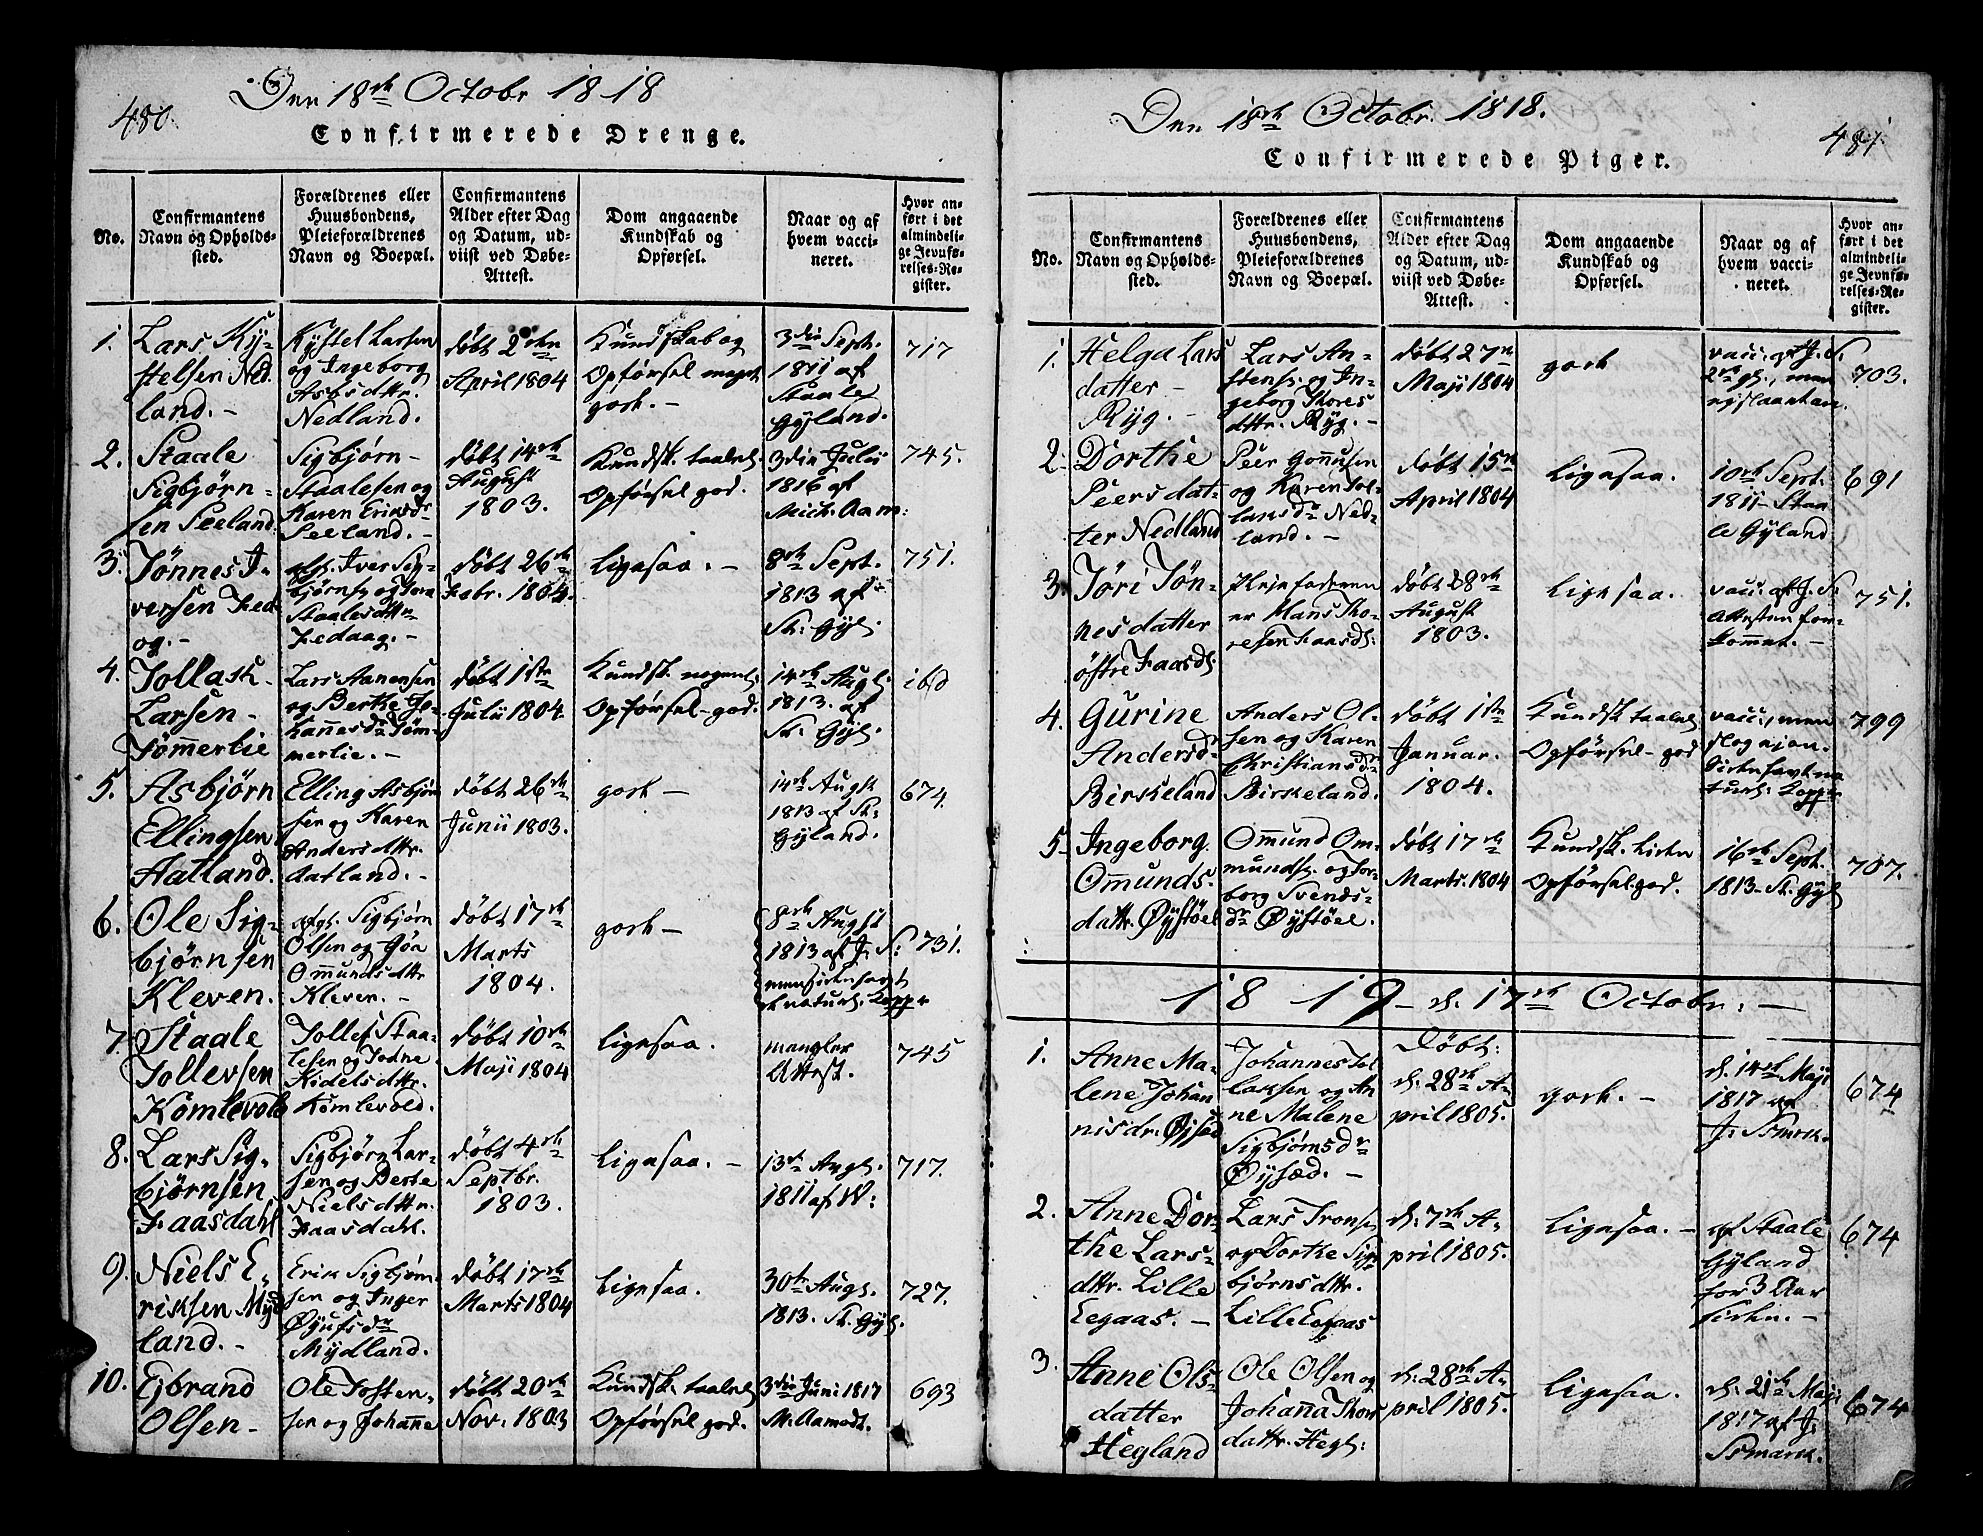 480.
Den 18de Octobr 1818
Confirmerede Drenge.
No.
Confirmantens
Navn og Opholds-
sted.
Forældrenes eller
Huusbondens,
Pleieforældrenes
Navn og Boepæl.
Confirmantens
Alder efter Dag
og Datum, ud-
viist ved Døbe-
Attest.
Dom angaaende
Kundskab og
Opførsel.
Naar og af
hvem vacci-
neret.
Hvor an-
ført i det
almindeli-
ge Jevnfø-
relses-Re-
gister.
1.
Lars Ky-
stelsen Ned-
land. -
Kystel Larsen
og Ingeborg
Asbs dttr.
Nedland.
døbt 2den
April 1804
Kundskab og
Opførsel meget
godt. -
3die Sept.
1811 af
Staale
Gyland.
717
2.
Staale
Sigbjørn-
sen Seeland.
Sigbjørn
Staalesen og
Karen Ericsdr
Seeland. -
døbt 14de
August
1803.
Kundsk. taalel.
Opførsel god.
3die Julii
1816 af
Mich. Aam:
745.
3.
Tønnes I-
versen Fed-
og. -
afg. Iver Sig-
bjørns. og Tora
Staalesdttr
Fedaag. -
døbt 26de
Febr. 1804.
Ligesaa. -
8de Sept.
1813 af
St. Gyl.
751.
4.
Tollash
Larsen -
Tømmerlie
Lars Aanensen
og Berthe Jo-
hannesdr Tøm-
merlie. -
døbt 1ste
Julii 1804.
Kundsk. nogenl.
Opførsel - god.
14de Augl.
1813. af
St. Gyl.
ibd
5.
Asbjørn
Ellingsen
Aatland.
Elling Asbjørn
sen og Karen
Andersdttr.
Aatland. -
døbt 26de
Junii 1803.
godt -
14de Augl
1813 af St.
Gyland.
674.
6.
Ole Sig-
bjørnsen
Kleven.
afg. Sigbjørn
Olsen og Gøa
Ommundsdttr
Kleven. -
døbt 17de
Marts
1804.
godt -
8de Augst
1813 af J. S:
731.
7.
Staale
Tollevsen
Komlevold
Tollef Staa-
lesen og Jodne
Kidelsdttr.
Komlevold.
døbt 10de
Maji 1804
ligesaa.
mangler
Attest.
745
8.
Lars Sig-
bjørnsen
Faasdahl
Sigbjørn Lar-
sen og Berte
Nielsdttr.
Faasdahl.
døbt 4de
Septbr.
1803.
Ligesaa. -
13de Augl.
1811 af W:
717.
9.
Niels E-
riksen Myd
land. -
Erik Sigbjørn-
sen og Inger
Øyufsdr
Mydland.
døbt 17de
Marts 1804
Ligesaa.
30te Augl.
1813. St. Gyl.
727.
10.
Ejbrand
Olsen -
Ole Tosten-
sen og Johanne
døbt 20de
Nov. 1803
Kundsk. taalel.
Opførsel god.
3die Juni 1817
M. Aamodt.
693
Den 18de Octobr. 1818.
481.
Confirmerede Piger.
No.
Confirmantens
Navn og Opholds-
sted.
Forældrenes eller
Huusbondens,
Pleieforældrenes
Navn og Boepæl.
Confirmantens
Alder efter Dag
og Datum, ud-
viist ved Døbe-
Attest.
Dom angaaende
Kundskab og
Opførsel.
Naar og af
hvem vacci-
neret.
Hvor an-
ført i det
almindeli-
ge Jevnfø-
relses-Re-
gister.
1.
Helga Lars
datter -
Ryg. -
Lars An-
stens. og In-
geborg Thores
dttr. Ryg. -
døbt 27de
Maji 1804
godt
vacc. af J. S.
703.
2.
Dorthe
Peersdat-
ter Nedland
Peer Gonnusen
og Karen Tol-
lansdr Ned-
land. -
døbt 15de
April 1804
Ligesaa.
10de Sept.
1811 - Staa-
le Gyland
691
3.
Tøri Tøn-
nesdatter
østre Faasdl.
Pleiefaderen
er Hans Tho-
resen Faasdl.
døbt 28de
August
1803.
Ligesaa.
vacc. af J. S.
Attesten for-
kommet. -
751.
4.
Gurine
Andersdr
Birkeland
Anders Ol-
sen og Karen
Christiansdr
Birkeland.
døbt 1ste
Januar.
1804.
Kundsk taalel
Opførsel - god
vacc., men
799
5.
Ingeborg
Ommunds-
dattr. Øystøel
Ommund Om-
munds. og Tor-
borg Svends-
dr Øystøel.
døbt 17de
Marts. 1804
Kundsk. liden
Opførsel - god.
16de Sept.
1813 - St. Gyl
707.
1819 - d. 17de Octobr: -
1.
Anne Ma-
lene Johan
nisdr. Øjsæd
Johannes Tol
laksen og An-
ne Malene
Sigbjørnsdr
Øysæd. -
Døbt:
d. 28de A-
pril 1805.
godt. -
d. 14de Maji
1817 af
J. Ssmark.
674
2.
Anne Dor-
the Lars-
dttr. Lille
Eegaas. -
Lars Trons.
og Dorthe Sig-
bjørnsdttr.
Lille Eegaas
d. 7de A-
pril 1805.
Ligesaa. -
af Staale
Gyland
for 3 Aar
siden. -
674
3.
Anne Ols-
datter
Hegland
Ole Olsen og
Johanna Thors
dattr. Hegl:
d. 28de A-
pril 1805.
Ligesaa.
d. 21de Maji
1817 af J.
Ssmark.
674